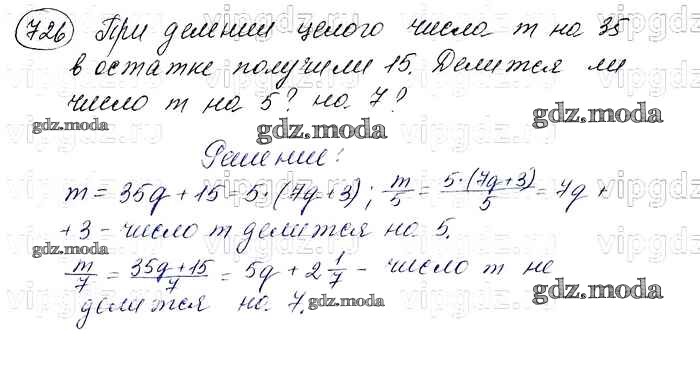 726 При делении целого числа m на 35
в остатке получили 15. Делится ли
число m на 5? на 7?
Решение:
m = 35q + 15 = 5·(7q + 3); m/5 = 5·(7q+3)/5 = 7q +
+3 - число m делится на 5.
m/7 = 35q+15/7 = 5q + 2 1/7 - число m не
делится на 7.
gdz.moda
gdz.moda
gdz.moda
gdz.moda
gdz.moda
gdz.moda
gdz.moda